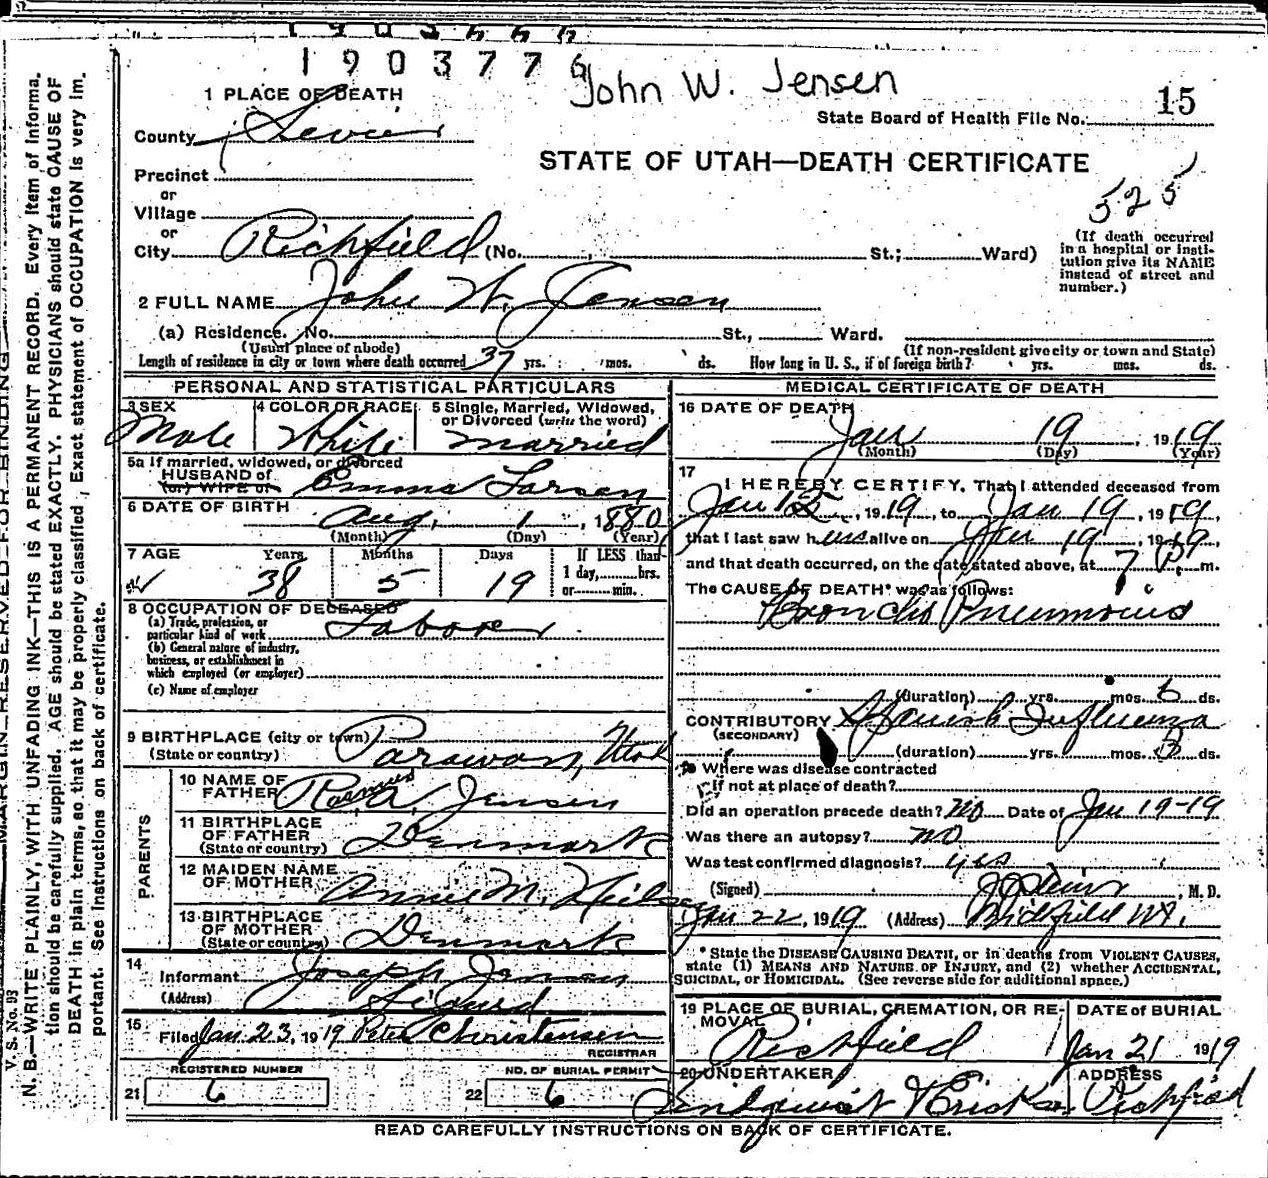 1903776
John W. Jensen
15
1 PLACE OF DEATH
State Board of Health File No.
County Sevier
STATE OF UTAH—DEATH CERTIFICATE
Precinct
or
Village
or
City Richfield (No. St.; Ward)
525
(If death occurred
in a hospital or insti-
tution give its NAME
instead of street and
number.)
2 FULL NAME John W. Jensen
(a) Residence. No. St., Ward.
(Usual place of abode) (If non-resident give city or town and State)
Length of residence in city or town where death occurred 37 yrs. mos. ds. How long in U. S., if of foreign birth? yrs. mos. ds.
PERSONAL AND STATISTICAL PARTICULARS
3 SEX 4 COLOR OR RACE 5 Single, Married, Widowed,
or Divorced (write the word)
Male White Married
5a If married, widowed, or divorced
HUSBAND of
(or) WIFE of Emma Larsen
6 DATE OF BIRTH Aug. 1, 1880
(Month) (Day) (Year)
7 AGE Years Months Days If LESS than
1 day, hrs.
or min.
38 5 19
8 OCCUPATION OF DECEASED
(a) Trade, profession, or
particular kind of work Laborer
(b) General nature of industry,
business, or establishment in
which employed (or employer)
(c) Name of employer
9 BIRTHPLACE (city or town)
(State or country) Parawan, Utah
PARENTS
10 NAME OF
FATHER Rasmus A. Jensen
11 BIRTHPLACE
OF FATHER
(State or country) Denmark
12 MAIDEN NAME
OF MOTHER Annie M. Neilsen
13 BIRTHPLACE
OF MOTHER
(State or country) Denmark
14
Informant Joseph Jensen
(Address) Sigurd
15
Filed Jan 23, 1919 Peter Christensen
REGISTRAR
REGISTERED NUMBER NO. OF BURIAL PERMIT
21 6 22 6
MEDICAL CERTIFICATE OF DEATH
16 DATE OF DEATH
Jan 19, 1919
(Month) (Day) (Year)
17
I HEREBY CERTIFY, That I attended deceased from
Jan 15, 1919, to Jan 19, 1919,
that I last saw him alive on Jan 19, 1919,
and that death occurred, on the date stated above, at 7 P. m.
The CAUSE OF DEATH* was as follows:
Broncho Pneumonia
(duration) yrs. mos. ds.
CONTRIBUTORY Spanish Influenza
(SECONDARY)
(duration) yrs. mos. ds.
18 Where was disease contracted
If not at place of death?
Did an operation precede death? No Date of Jan 19-19
Was there an autopsy? no
Was test confirmed diagnosis? yes
(Signed) M. D.
Jan 22, 1919 (Address) Richfield Ut.
* State the DISEASE CAUSING DEATH, or in deaths from VIOLENT CAUSES,
state (1) MEANS AND NATURE OF INJURY, and (2) whether ACCIDENTAL,
SUICIDAL, or HOMICIDAL. (See reverse side for additional space.)
19 PLACE OF BURIAL, CREMATION, OR RE-
MOVAL DATE of BURIAL
Richfield Jan 21 1919
20 UNDERTAKER ADDRESS
Richfield
READ CAREFULLY INSTRUCTIONS ON BACK OF CERTIFICATE.
MARGIN RESERVED FOR BINDING
V. S. No. B5
N. B.—WRITE PLAINLY, WITH UNFADING INK—THIS IS A PERMANENT RECORD. Every item of informa-
tion should be carefully supplied. AGE should be stated EXACTLY. PHYSICIANS should state CAUSE OF
DEATH in plain terms, so that it may be properly classified. Exact statement of OCCUPATION is very im-
portant. See instructions on back of certificate.